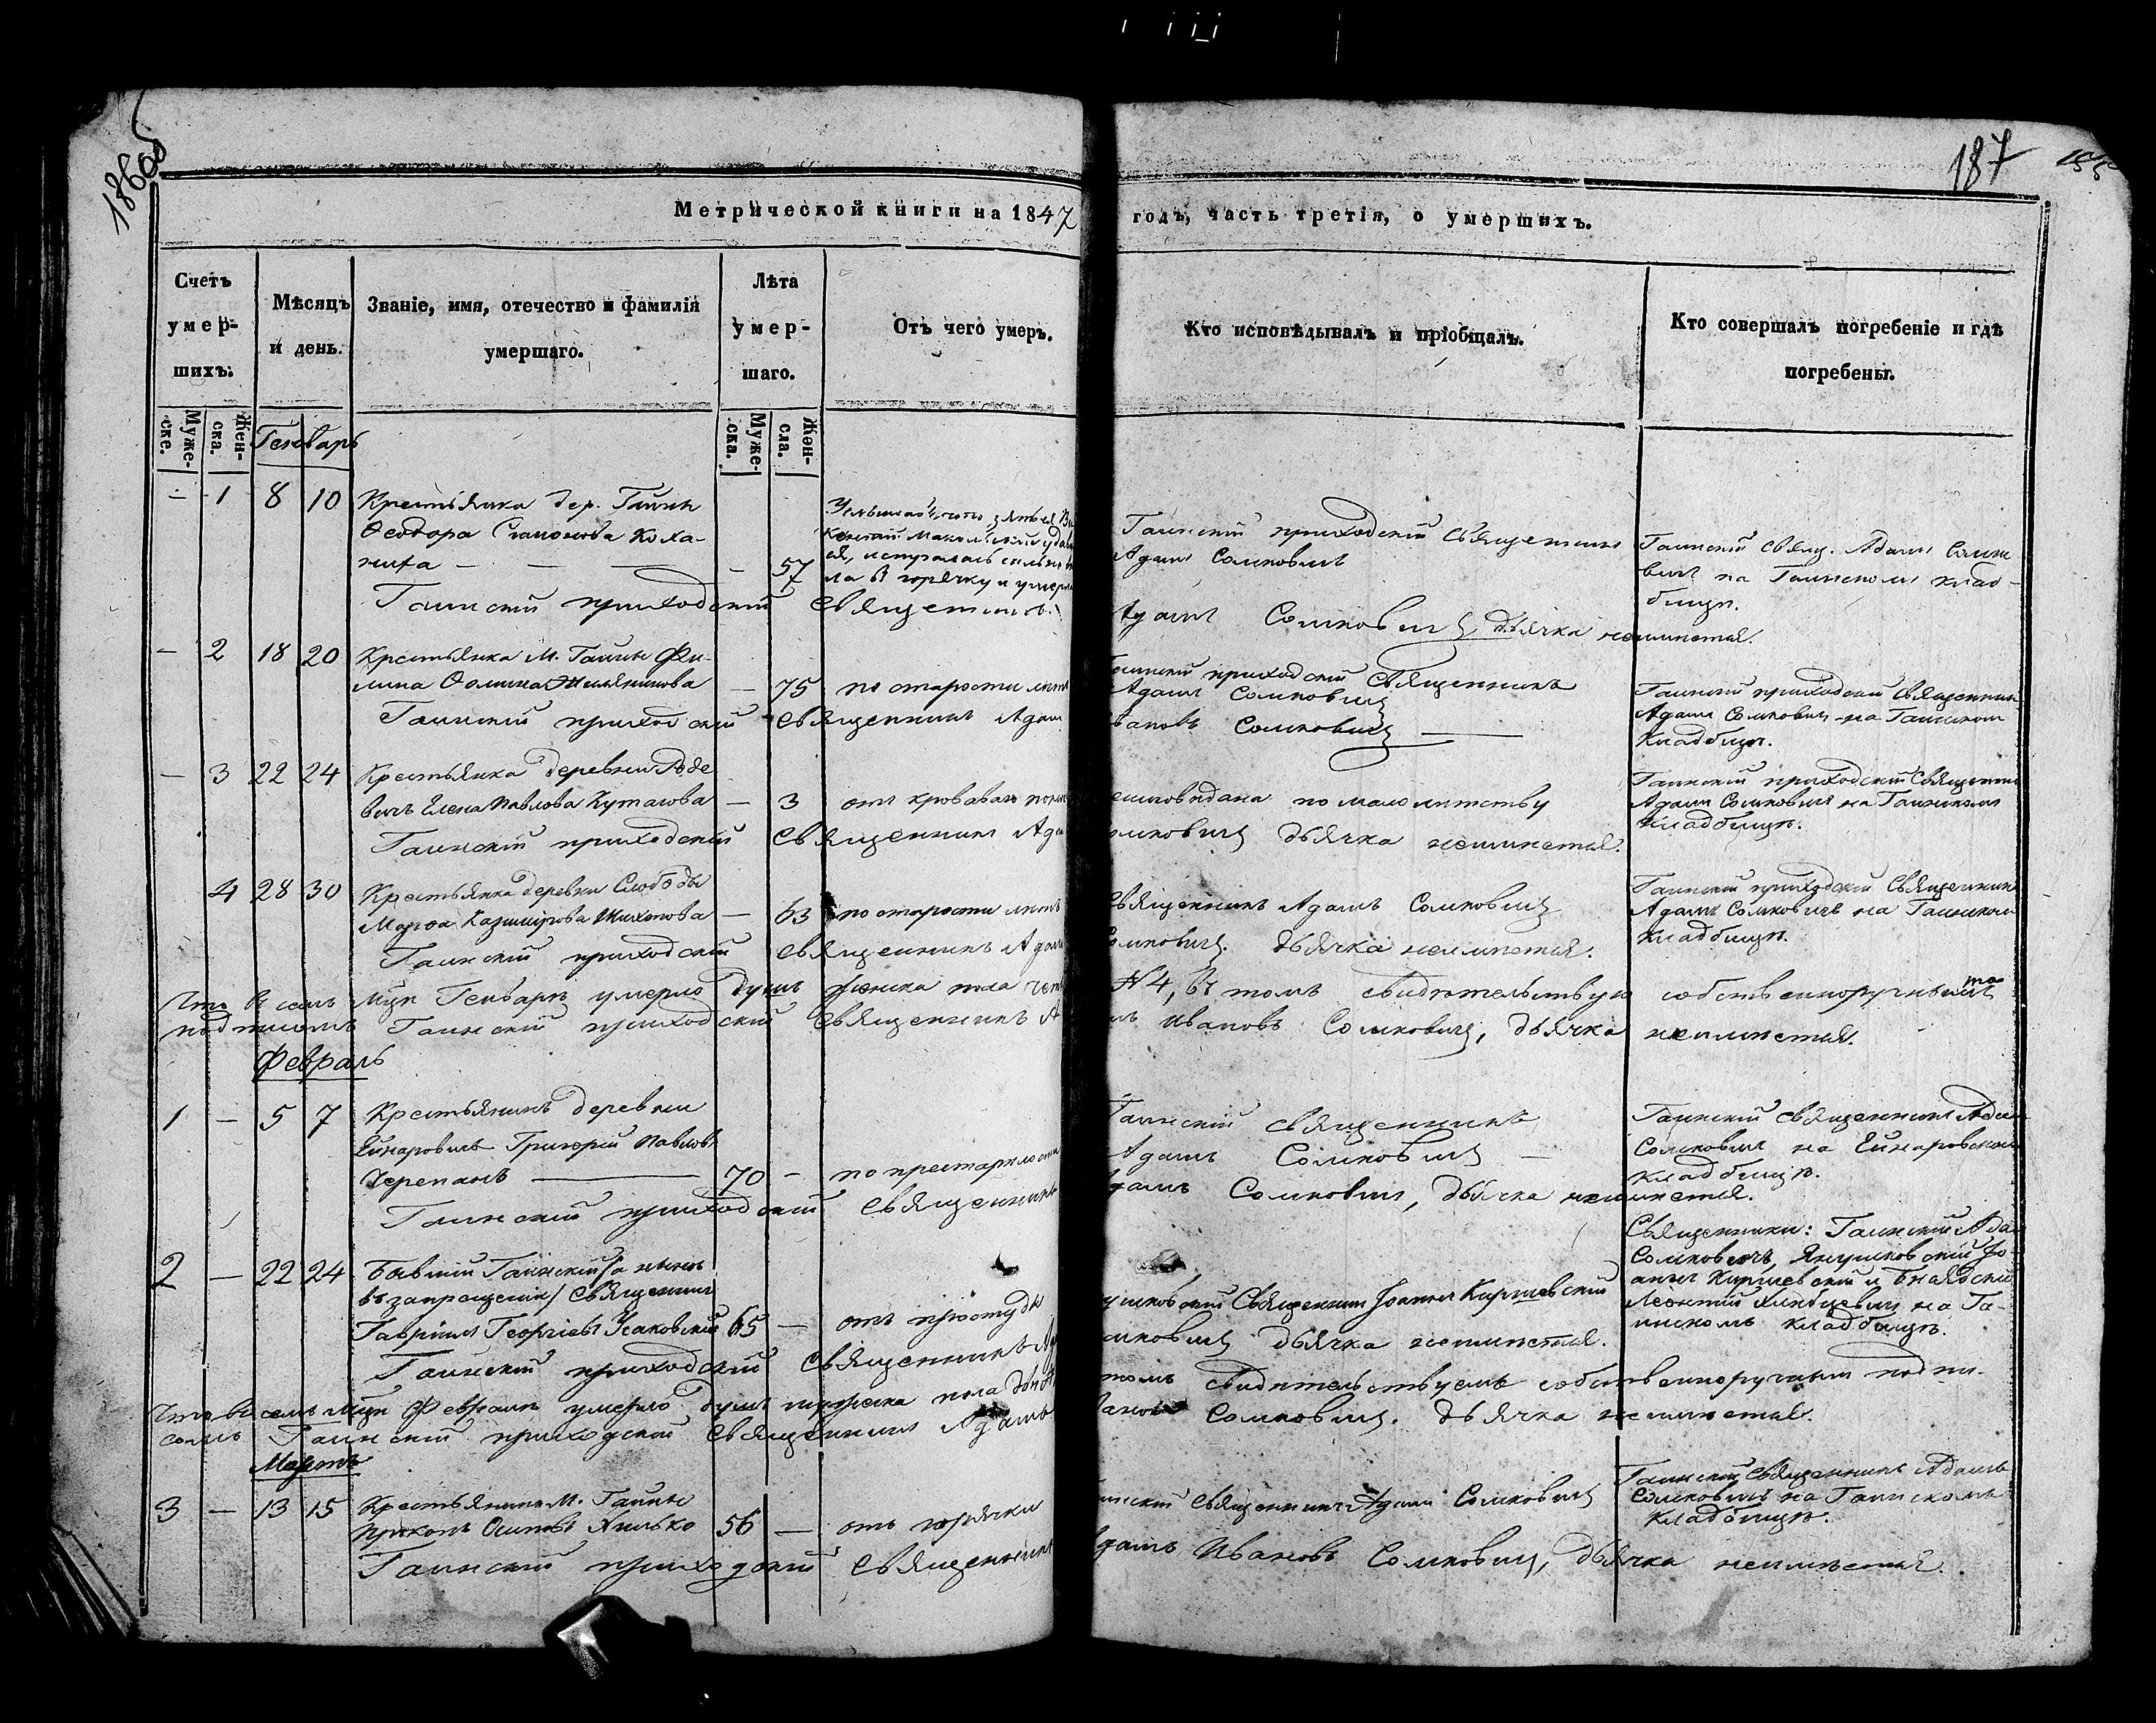 186об
187
Метрической книги на 1847 годъ, часть третія, о умершихъ.
Счетъ умер-шихъ.
Мѣсяцъ и день.
Званіе, имя, отечество и фамилія умершаго.
Лѣта умер-шаго.
Отъ чего умеръ.
Кто исповѣдывалъ и пріобщалъ.
Кто совершалъ погребеніе и гдѣ погребены.
Муже-ске.
Жен-ска.
Муже-ска.
Жен-ска.
Генварь
- 1 8 10 Крестьянка дер. Гайны
Ѳеодора Симонова Коха-
ниха — — — 57
ла въ горячку и умерла
Гаинскій приходскій Священникъ
Адамъ Сомковичъ
Гаинскій Свящ. Адамъ Сомко-
вичъ на Гаинскомъ клад-
бищѣ.
Гаинскій приходскій Священникъ
Адамъ Сомковичъ, дьячка неимѣется.
- 2 18 20 Крестьянка М. Гайны
— 75 по старости лѣтъ
Гаинскій приходскій Священникъ
Адамъ Сомковичъ
Гаинскій приходскій Священникъ
Адамъ Сомковичъ на Гаинскомъ
Кладбищѣ.
Гаинскій приходскій Священникъ Адамъ
Ивановъ Сомковичъ —
- 3 22 24 Крестьянка деревни
Елена Павлова — 3 отъ кроваваго
по малолѣтству
Гаинскій приходскій Священникъ
Адамъ Сомковичъ на Гаинскомъ
кладбищѣ.
Гаинскій приходскій Священникъ Адамъ
Сомковичъ дьячка неимѣется.
4 28 30 Крестьянка деревни Слободы
Марѳа Казимирова — 63 по старости лѣтъ
Священникъ Адамъ Сомковичъ
Гаинскій приходскій Священникъ
Адамъ Сомковичъ на Гаинскомъ
Кладбищѣ.
Гаинскій приходскій Священникъ Адамъ
Сомковичъ. дьячка неимѣется.
Что въ семъ Мцѣ Генварѣ умерло душъ женска пола
№ 4, въ томъ свидѣтельствую собственноручнымъ
подписомъ Гаинскій приходскій Священникъ
Ивановъ Сомковичъ, дьячка неимѣется.
Февраль
1 - 5 7 Крестьянинъ деревни
Ейнаровичъ Григорій Павловъ
Черепанъ — 70 - по престарѣлости
Гаинскій Священникъ
Адамъ Сомковичъ —
Гаинскій Священникъ Адамъ
Сомковичъ на Ейнаровскомъ
Кладбищѣ.
Гаинскій приходскій Священникъ
Адамъ Сомковичъ, дьячка неимѣется.
2 - 22 24 Бывшій Гаинскій /а нынѣ
въ запрещеніи/ Священникъ
Гавріилъ Георгіевъ Усаковскій 65 — отъ простуды
Священникъ Іоаннъ Киргиевскій
Священники: Гаинскій Адамъ
Сомковичъ, Янушковскій Іо-
аннъ Киргиевскій и
Леонтій на Га-
инскомъ кладбищѣ.
Гаинскій приходскій Священникъ
Сомковичъ дьячка неимѣется.
Что въ семъ Мцѣ Февралѣ умерло душъ мужеска пола двѣ
томъ свидѣтельствуемъ собственноручнымъ подпи-
сомъ Гаинскій приходскій Священникъ Адамъ
Ивановъ Сомковичъ. дьячка неимѣется.
Мартъ
3 - 13 15 Крестьянинъ М. Гайны
Прокопъ Осиповъ Хилько 56 — отъ горячки
Гаинскій Священникъ Адамъ Сомковичъ
Гаинскій Священникъ Адамъ
Сомковичъ на Гаинскомъ
Кладбищѣ.
Гаинскій приходскій Священникъ
Адамъ Ивановъ Сомковичъ, дьячка неимѣется.